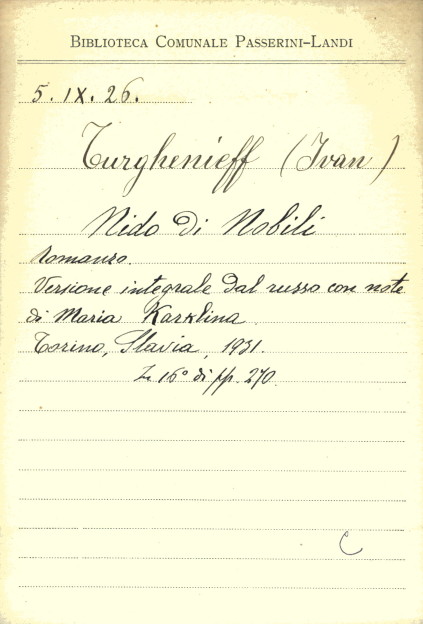 BIBLIOTECA COMUNALE PASSERINI-LANDI
5. IX. 26.
Turghenieff (Ivan)
Nido di Nobili
Romanzo.
Versione integrale dal russo con note
di Maria Karklina
Torino, Slavia, 1931.
In 16° di pp. 270.
C